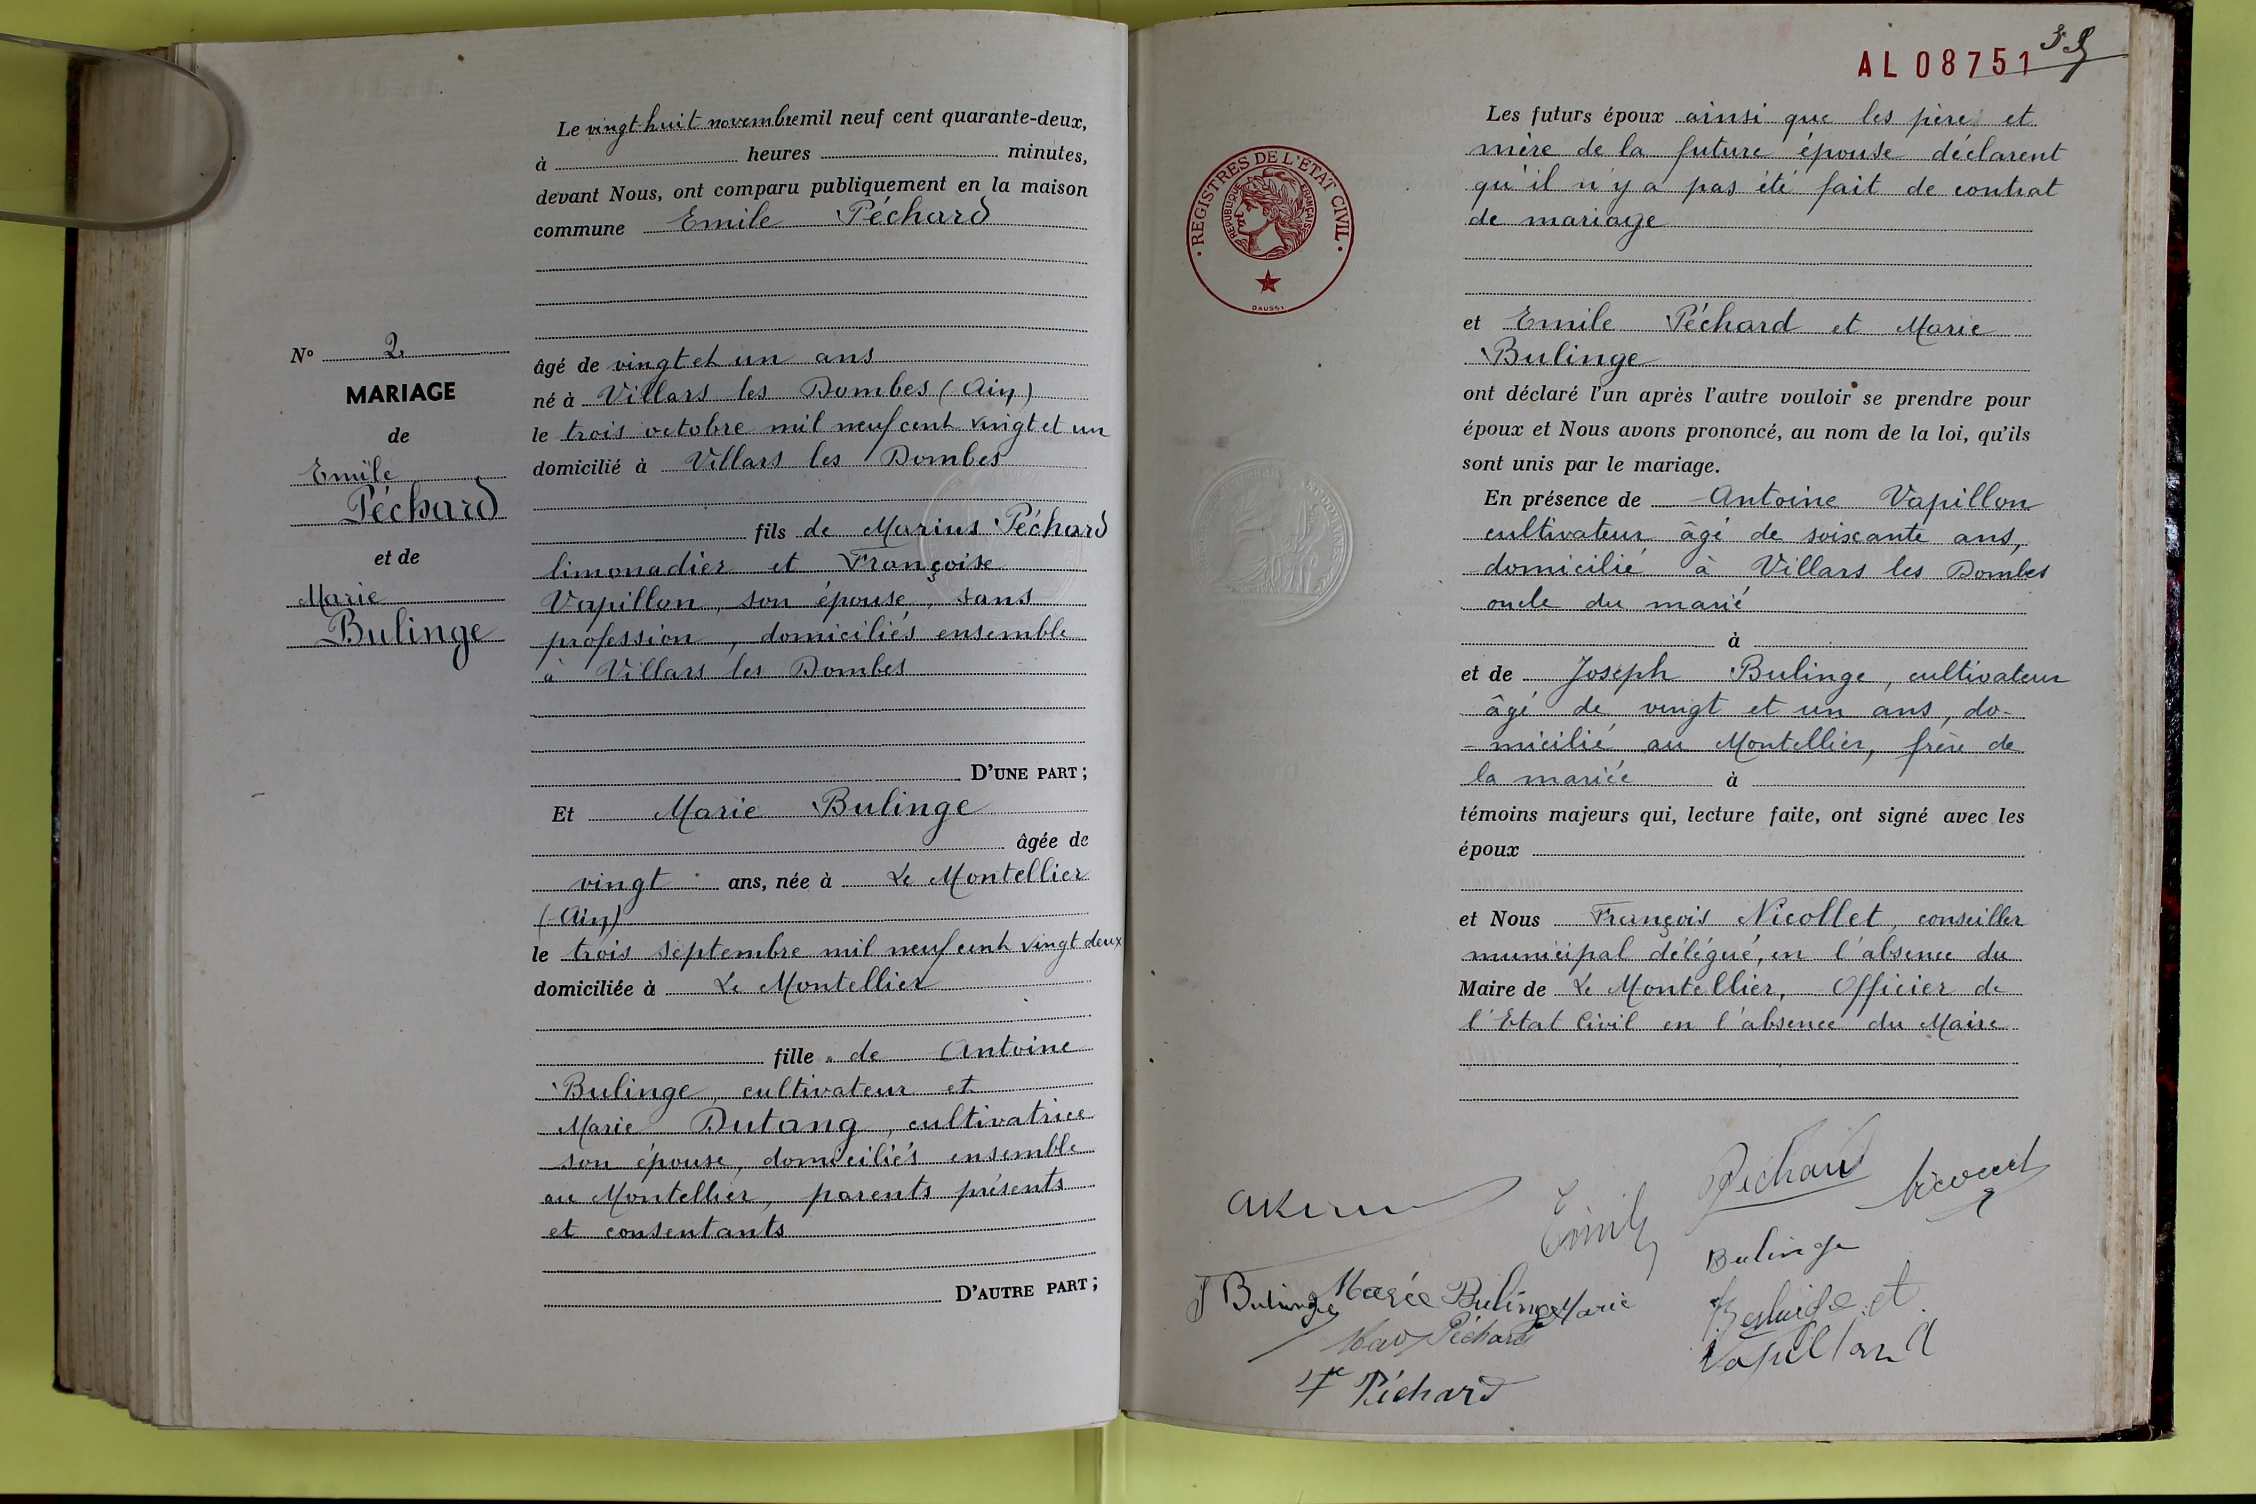 Le vingt-huit novembre mil neuf cent quarante-deux,
à heures minutes,
devant Nous, ont comparu publiquement en la maison
commune Emile Péchard
N° 2
MARIAGE
de
Emile
Péchard
et de
Marie
Bulinge
âgé de vingt et un ans
né à Villars les Dombes (Ain)
le trois octobre mil neuf cent vingt et un
domicilié à Villars les Dombes
fils de Marius Péchard
limonadier et Françoise
Vapillon, son épouse, sans
profession, domiciliés ensemble
à Villars les Dombes
D'UNE PART;
Et Marie Bulinge
âgée de
vingt ans, née à Le Montellier
(Ain)
le trois septembre mil neuf cent vingt deux
domiciliée à Le Montellier
fille de Antoine
Bulinge, cultivateur et
Marie Dutang, cultivatrice
son épouse, domiciliés ensemble
au Montellier, parents présents
et consentants
D'AUTRE PART;
AL08751
REGISTRES DE L'ETAT CIVIL
REPUBLIQUE FRANÇAISE
Les futurs époux ainsi que les père et
mère de la future épouse déclarent
qu'il n'y a pas été fait de contrat
de mariage
et Emile Péchard et Marie
Bulinge
ont déclaré l'un après l'autre vouloir se prendre pour
époux et Nous avons prononcé, au nom de la loi, qu'ils
sont unis par le mariage.
En présence de Antoine Vapillon
cultivateur âgé de soixante ans,
domicilié à Villars les Dombes
oncle du marié
à
et de Joseph Bulinge, cultivateur
âgé de vingt et un ans, do-
-micilié au Montellier, frère de
la mariée à
témoins majeurs qui, lecture faite, ont signé avec les
époux
et Nous François Nicollet, conseiller
municipal délégué, en l'absence du
Maire de Le Montellier, Officier de
l'Etat Civil en l'absence du Maire
Péchard
Emile
Bulinge
J Bulinge Marie Bulinge Marie
Péchard
Vapillon A
F Péchard